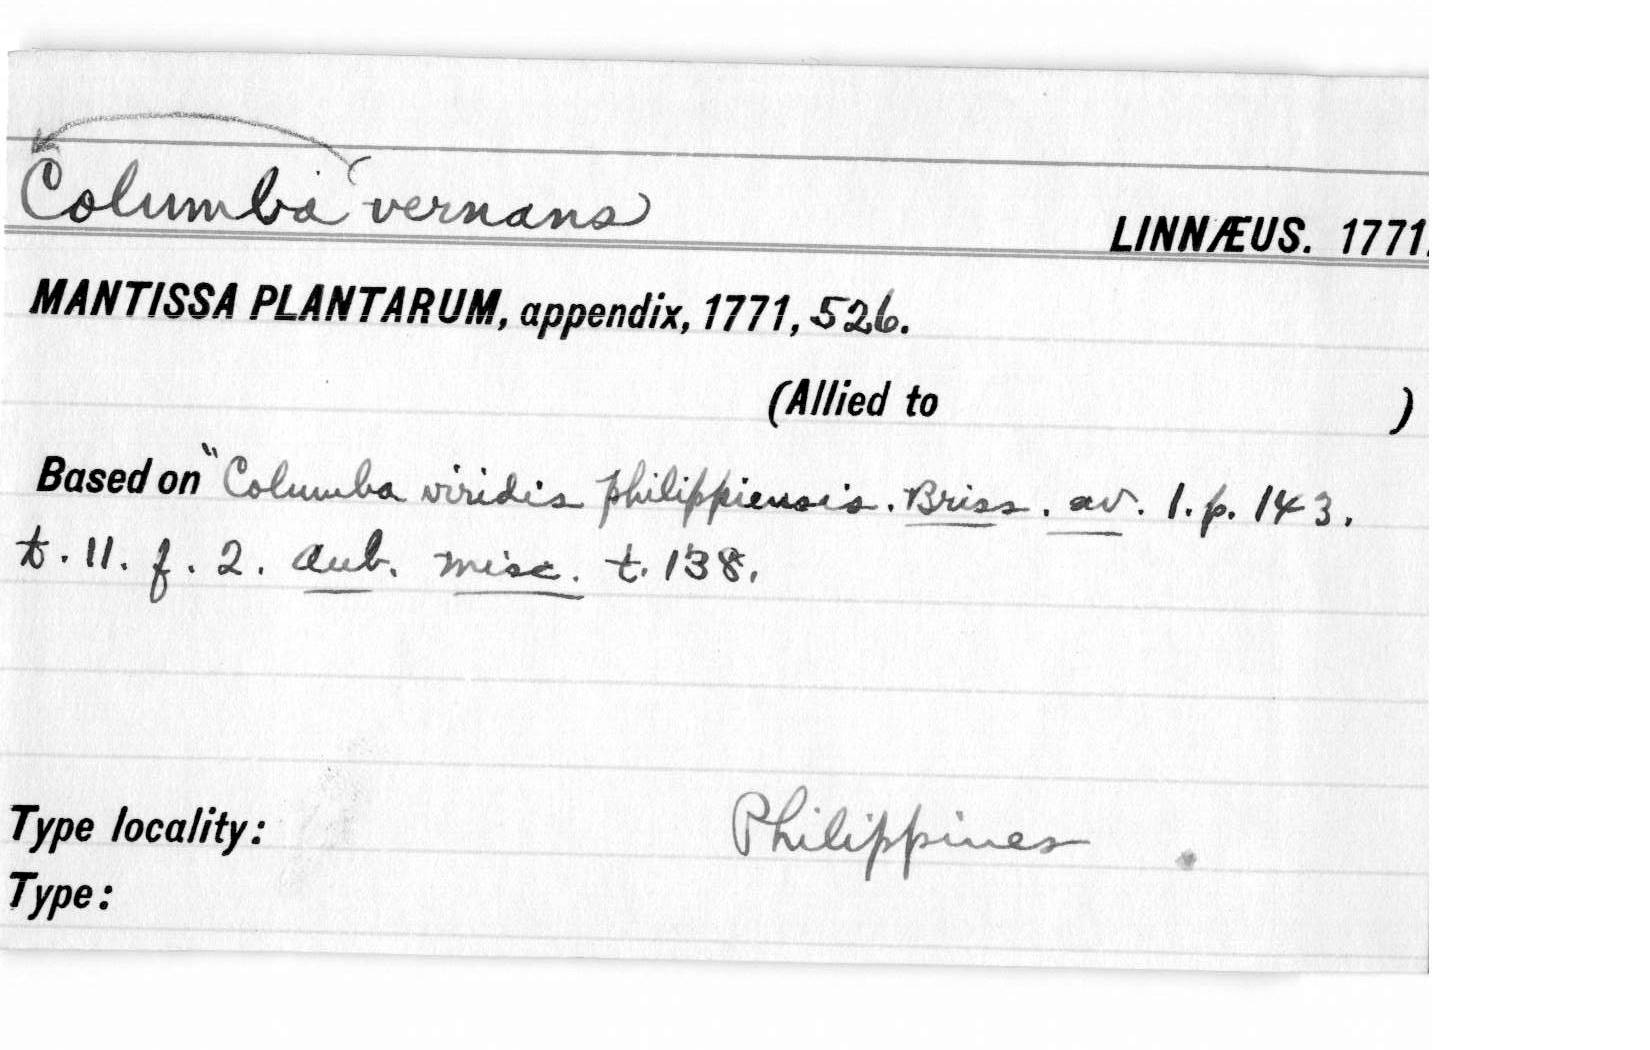 Columba vernans
LINNÆUS. 1771.
MANTISSA PLANTARUM, appendix, 1771, 526.
(Allied to )
Based on "Columba viridis philippiensis. Briss. av. 1. p. 143.
t. 11. f. 2. Aub. misc. t. 138.
Type locality: Philippines
Type: